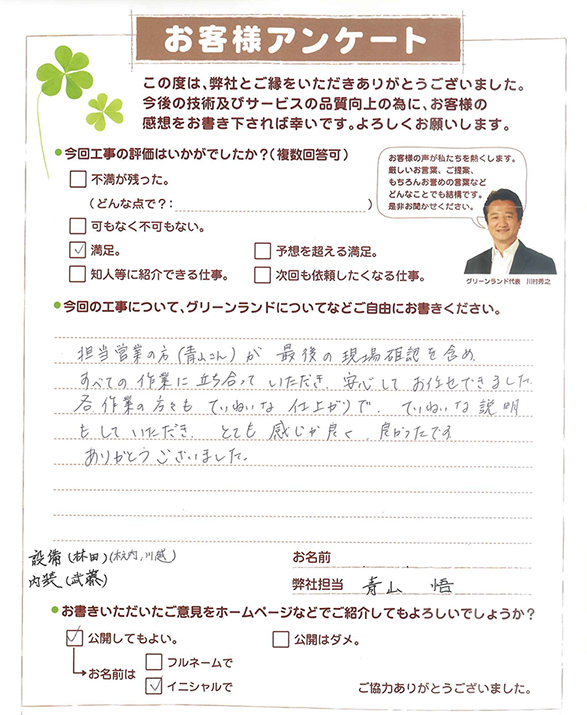 お客様アンケート
この度は、弊社とご縁をいただきありがとうございました。
今後の技術及びサービスの品質向上の為に、お客様の
感想をお書き下されば幸いです。よろしくお願いします。
●今回工事の評価はいかがでしたか？（複数回答可）
不満が残った。
（どんな点で？：　）
可もなく不可もない。
✓ 満足。
予想を超える満足。
知人等に紹介できる仕事。
次回も依頼したくなる仕事。
お客様の声が私たちを熱くします。
厳しいお言葉、ご提案、
もちろんお誉めの言葉など
どんなことでも結構です。
是非お聞かせください。
グリーンランド代表　川村秀之
●今回の工事について、グリーンランドについてなどご自由にお書きください。
担当営業の方（青山さん）が 最後の現場確認を含め、
すべての作業に立ち合っていただき、安心してお任せできました。
各作業の方々も ていねいな 仕上がりで、ていねいな説明
もしていただき、とても 感じが良く、良かったです
ありがとうございました。
設備（林田）（木内、川越）
内装（武藤）
お名前
弊社担当　青山　悟
●お書きいただいたご意見をホームページなどでご紹介してもよろしいでしょうか？
✓ 公開してもよい。
公開はダメ。
お名前は
フルネームで
✓ イニシャルで
ご協力ありがとうございました。